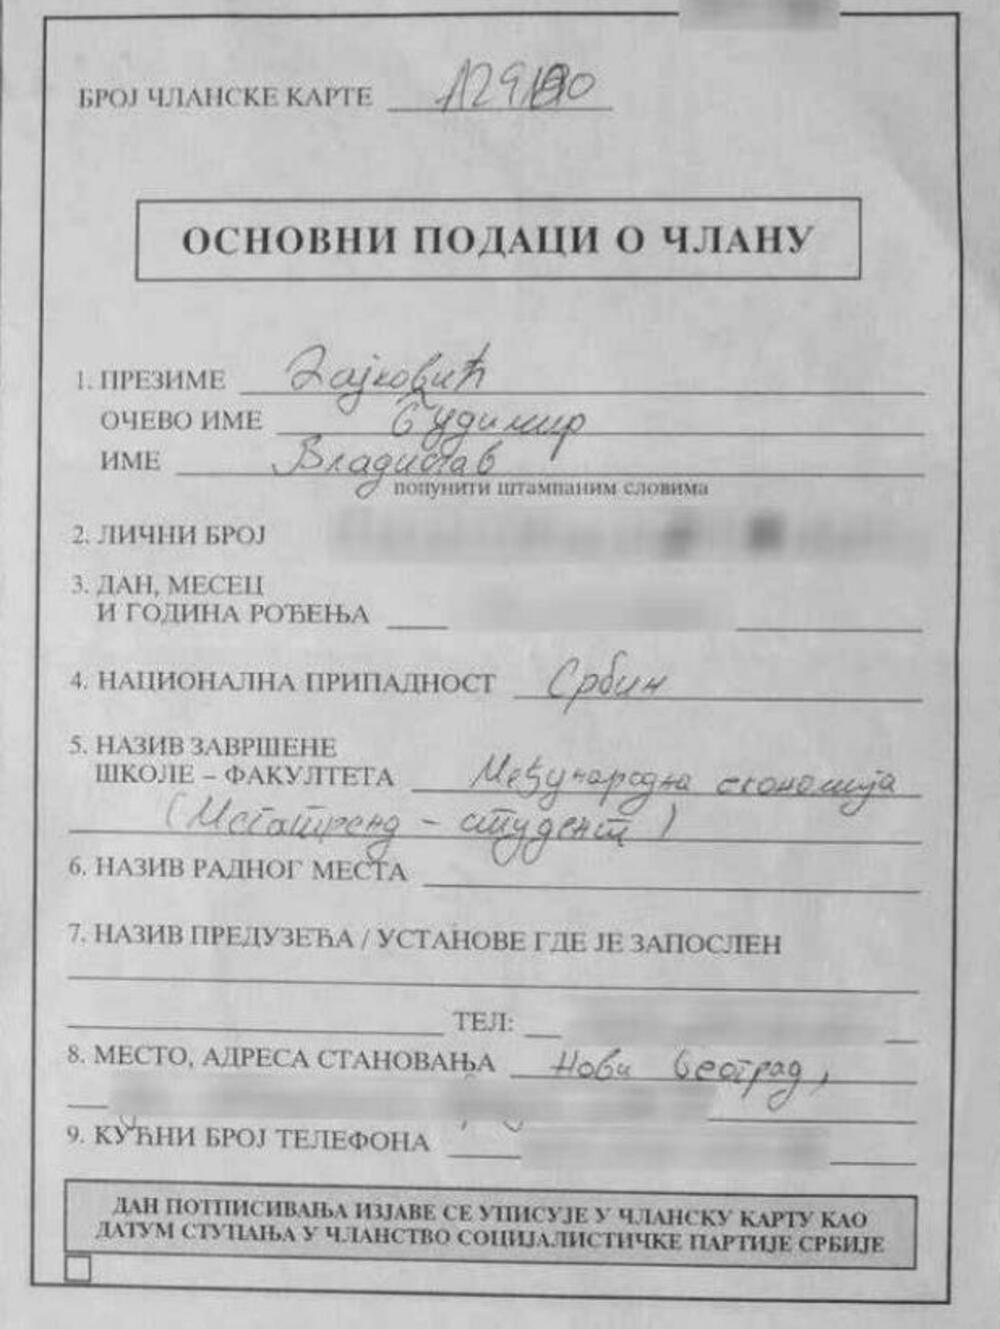 БРОЈ ЧЛАНСКЕ КАРТЕ
ОСНОВНИ ПОДАЦИ О ЧЛАНУ
1. ПРЕЗИМЕ Зајковић
ОЧЕВО ИМЕ Будимир
ИМЕ Владислав
попунити штампаним словима
2. ЛИЧНИ БРОЈ
3. ДАН, МЕСЕЦ
И ГОДИНА РОЂЕЊА
4. НАЦИОНАЛНА ПРИПАДНОСТ Србин
5. НАЗИВ ЗАВРШЕНЕ
ШКОЛЕ – ФАКУЛТЕТА Међународна економија
(Мегатренд – студент)
6. НАЗИВ РАДНОГ МЕСТА
7. НАЗИВ ПРЕДУЗЕЋА / УСТАНОВЕ ГДЕ ЈЕ ЗАПОСЛЕН
ТЕЛ:
8. МЕСТО, АДРЕСА СТАНОВАЊА Нови Београд,
9. КУЋНИ БРОЈ ТЕЛЕФОНА
ДАН ПОТПИСИВАЊА ИЗЈАВЕ СЕ УПИСУЈЕ У ЧЛАНСКУ КАРТУ КАО
ДАТУМ СТУПАЊА У ЧЛАНСТВО СОЦИЈАЛИСТИЧКЕ ПАРТИЈЕ СРБИЈЕ